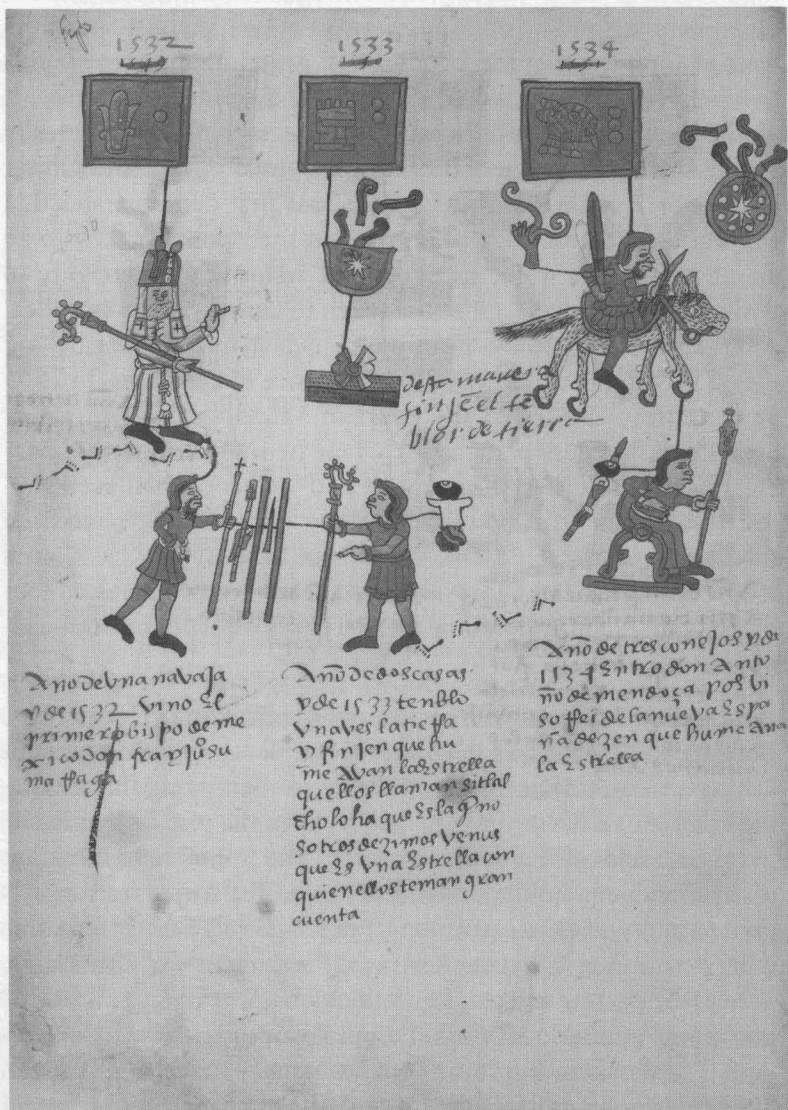 1532
1533
1534
desta manera
finjē el tē
blor de tierra
Año de vna navaja
y de 1532 vino El
primer obispo de me
xico don fray juº su
marraga
Año de dos casas
y de 1533 tenblo
vna ves la tierra
y finjen que hu
me avan la Estrella
que llos llaman sitlal
choloha que Es la q̄ no
sotros dezimos venus
que Es vna Estrella con
quien ellos tenian gran
cuenta
Año de tres conejos y de
1534 Entro don Anto
ño de mendoça por vi
so rrei de la nueva Espa
ña dezen que humeava
la Estrella